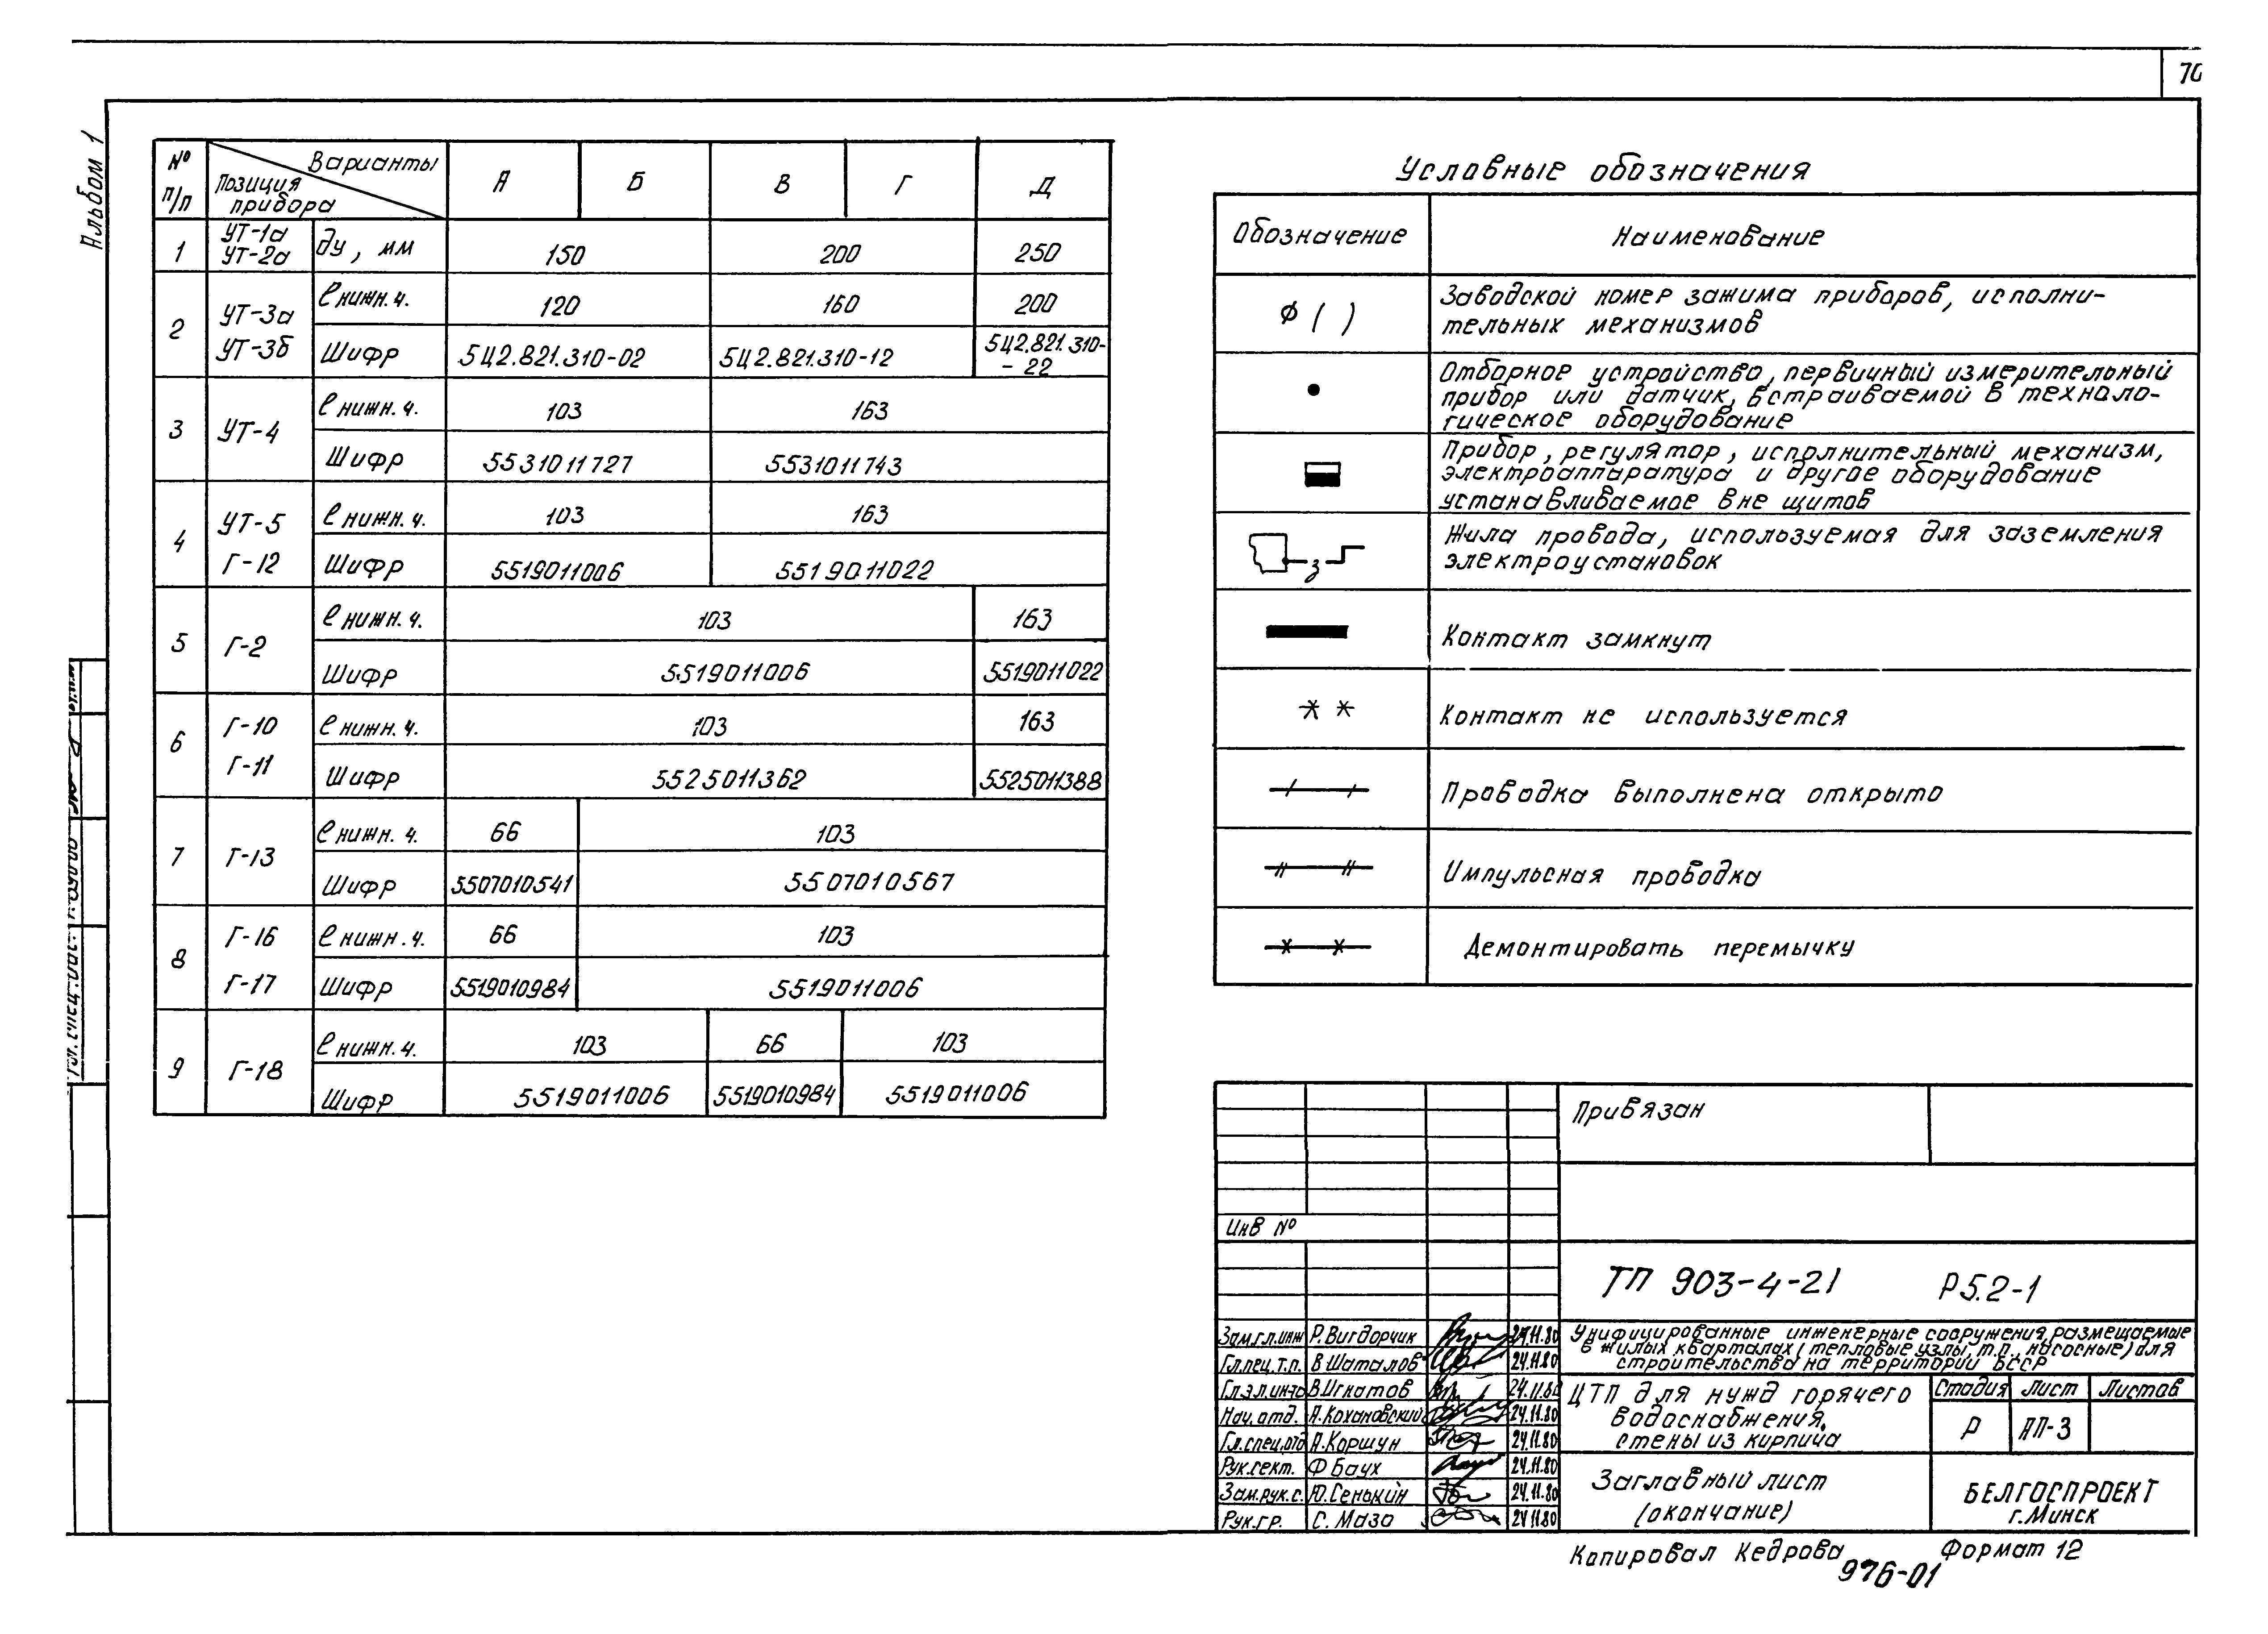 70
Альбом 1
№ п/п
Варианты
Позиция прибора
А Б В Г Д
1 УТ-1а УТ-2а Ду, мм 150 200 250
2 УТ-3а УТ-3б ℓ нижн. ч. 120 160 200
Шифр 5Ц2.821.310-02 5Ц2.821.310-12 5Ц2.821.310--22
3 УТ-4 ℓ нижн. ч. 103 163
Шифр 5531011727 5531011743
4 УТ-5 Г-12 ℓ нижн. ч. 103 163
Шифр 5519011006 5519011022
5 Г-2 ℓ нижн. ч. 103 163
Шифр 5519011006 5519011022
6 Г-10 Г-11 ℓ нижн. ч. 103 163
Шифр 5525011362 5525011388
7 Г-13 ℓ нижн. ч. 66 103
Шифр 5507010541 5507010567
8 Г-16 Г-17 ℓ нижн. ч. 66 103
Шифр 5519010984 5519011006
9 Г-18 ℓ нижн. ч. 103 66 103
Шифр 5519011006 5519010984 5519011006
Условные обозначения
Обозначение Наименование
ф ( ) Заводской номер зажима приборов, исполни-
тельных механизмов
Отборное устройство, первичный измерительный
прибор или датчик, встраиваемой в техноло-
гическое оборудование
Прибор, регулятор, исполнительный механизм,
электроаппаратура и другое оборудование
устанавливаемое вне щитов
з Жила провода, используемая для заземления
электроустановок
Контакт замкнут
Контакт не используется
Проводка выполнена открыто
Импульсная проводка
Демонтировать перемычку
Привязан
Инв №
ТП 903-4-21 Р5.2-1
Зам.гл.инж Р. Вигдорчик 24.11.80
Гл.пец.т.п. В Шаталов 24.11.80
Гл.эл.ин-та В.Игнатов 24.11.80
Нач. отд. А.Кохановский 24.11.80
Гл.спец.отд А.Коршун 24.11.80
Рук.сект. Ф Баух 24.11.80
Зам.рук.с. Ю.Сенькин 24.11.80
Рук.гр. С. Маза 24.11.80
Унифицированные инженерные сооружения, размещаемые
в жилых кварталах (тепловые узлы, т.п., насосные) для
строительства на территории БССР
ЦТП для нужд горячего
водоснабжения,
стены из кирпича
Стадия Лист Листов
Р АП-3
Заглавный лист
(окончание)
БЕЛГОСПРОЕКТ
г. Минск
Копировал Кедрова Формат 12
976-01